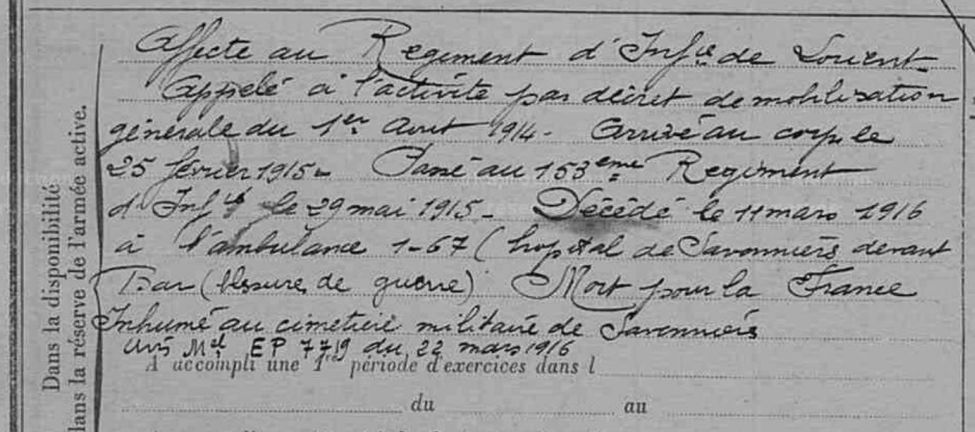 Affecté au Régiment d'Inf ie de Lorient
Appelé à l'activité par décret de mobilisation
générale du 1er Aout 1914 - Arrivé au corps le
25 février 1915 - Passé au 153 ème Régiment
d'Inf ie le 29 mai 1915 - Décédé le 11 mars 1916
à l'ambulance 1-67 (hopital de Savonniers devant
Bar (blessures de guerre) Mort pour la France
Inhumé au cimetière militaire de Savonniers
avis Mel EP 7719 du 22 mars 1916
A accompli une 1re période d'exercices dans l
du au
Dans la disponibilité
dans la réserve de l'armée active.